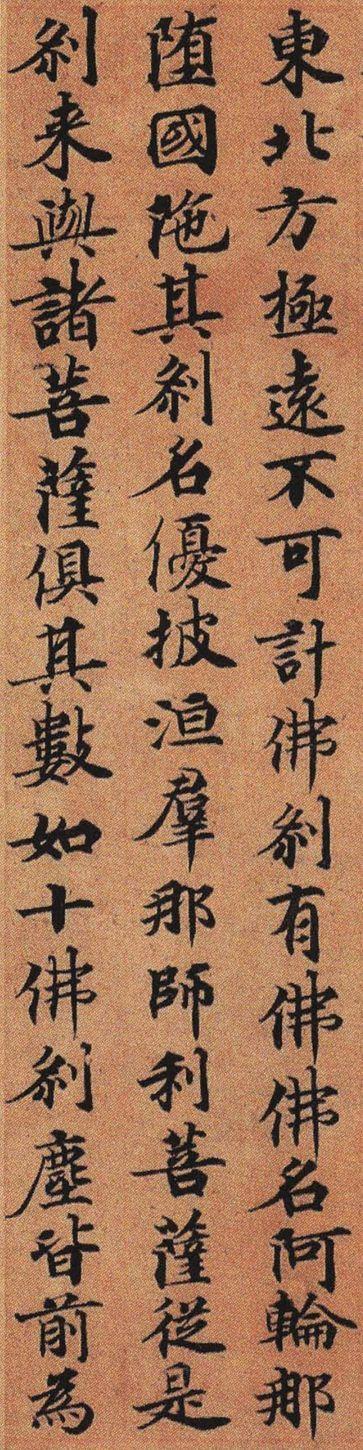 東北方極遠不可計佛剎有佛佛名阿輪那
墮國陁其剎名優披洹羣那師利菩薩從是
剎来與諸菩薩俱其數如十佛剎塵皆前為